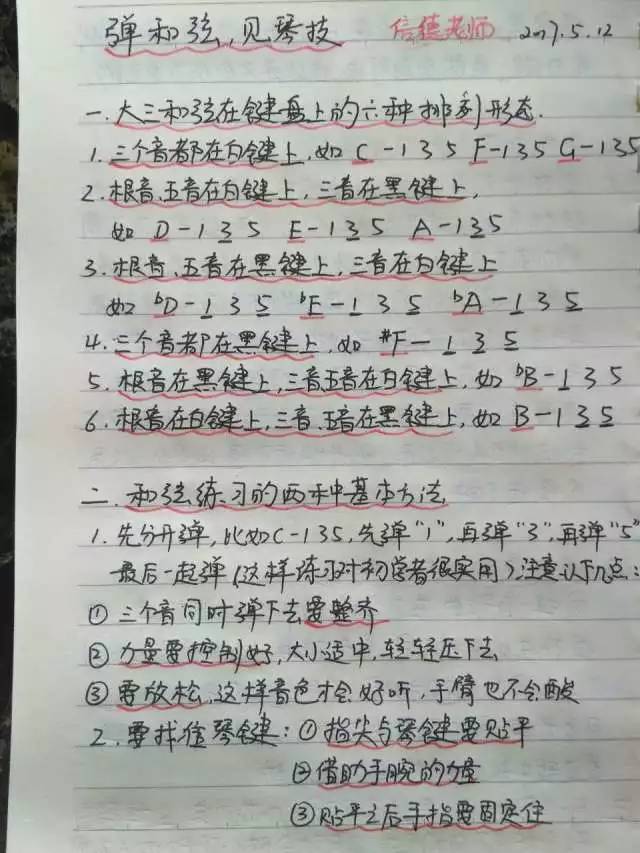 弹和弦,见琴技 信德老师 2017.5.12
一.大三和弦在键盘上的六种排列形态.
1.三个音都在白键上,如 C-1 3 5 F-1 3 5 G-1 3 5
2.根音、五音在白键上,三音在黑键上,
如 D-1 3 5 E-1 3 5 A-1 3 5
3.根音、五音在黑键上,三音在白键上
如 bD-1 3 5 bE-1 3 5 bA-1 3 5
4.三个音都在黑键上,如 #F-1 3 5
5.根音在黑键上,三音五音在白键上,如 bB-1 3 5
6.根音在白键上,三音、五音在黑键上,如 B-1 3 5
二.和弦练习的两种基本方法
1.先分开弹,比如C-1 3 5,先弹“1”,再弹“3”,再弹“5”
最后一起弹(这样练习对初学者很实用)注意以下几点:
① 三个音同时弹下去要整齐
② 力量要控制好,大小适中,轻轻压下去
③ 要放松,这样音色才会好听,手臂也不会酸
2.要找住琴键:①指尖与琴键要贴平
②借助手腕的力量
③贴平之后手指要固定住